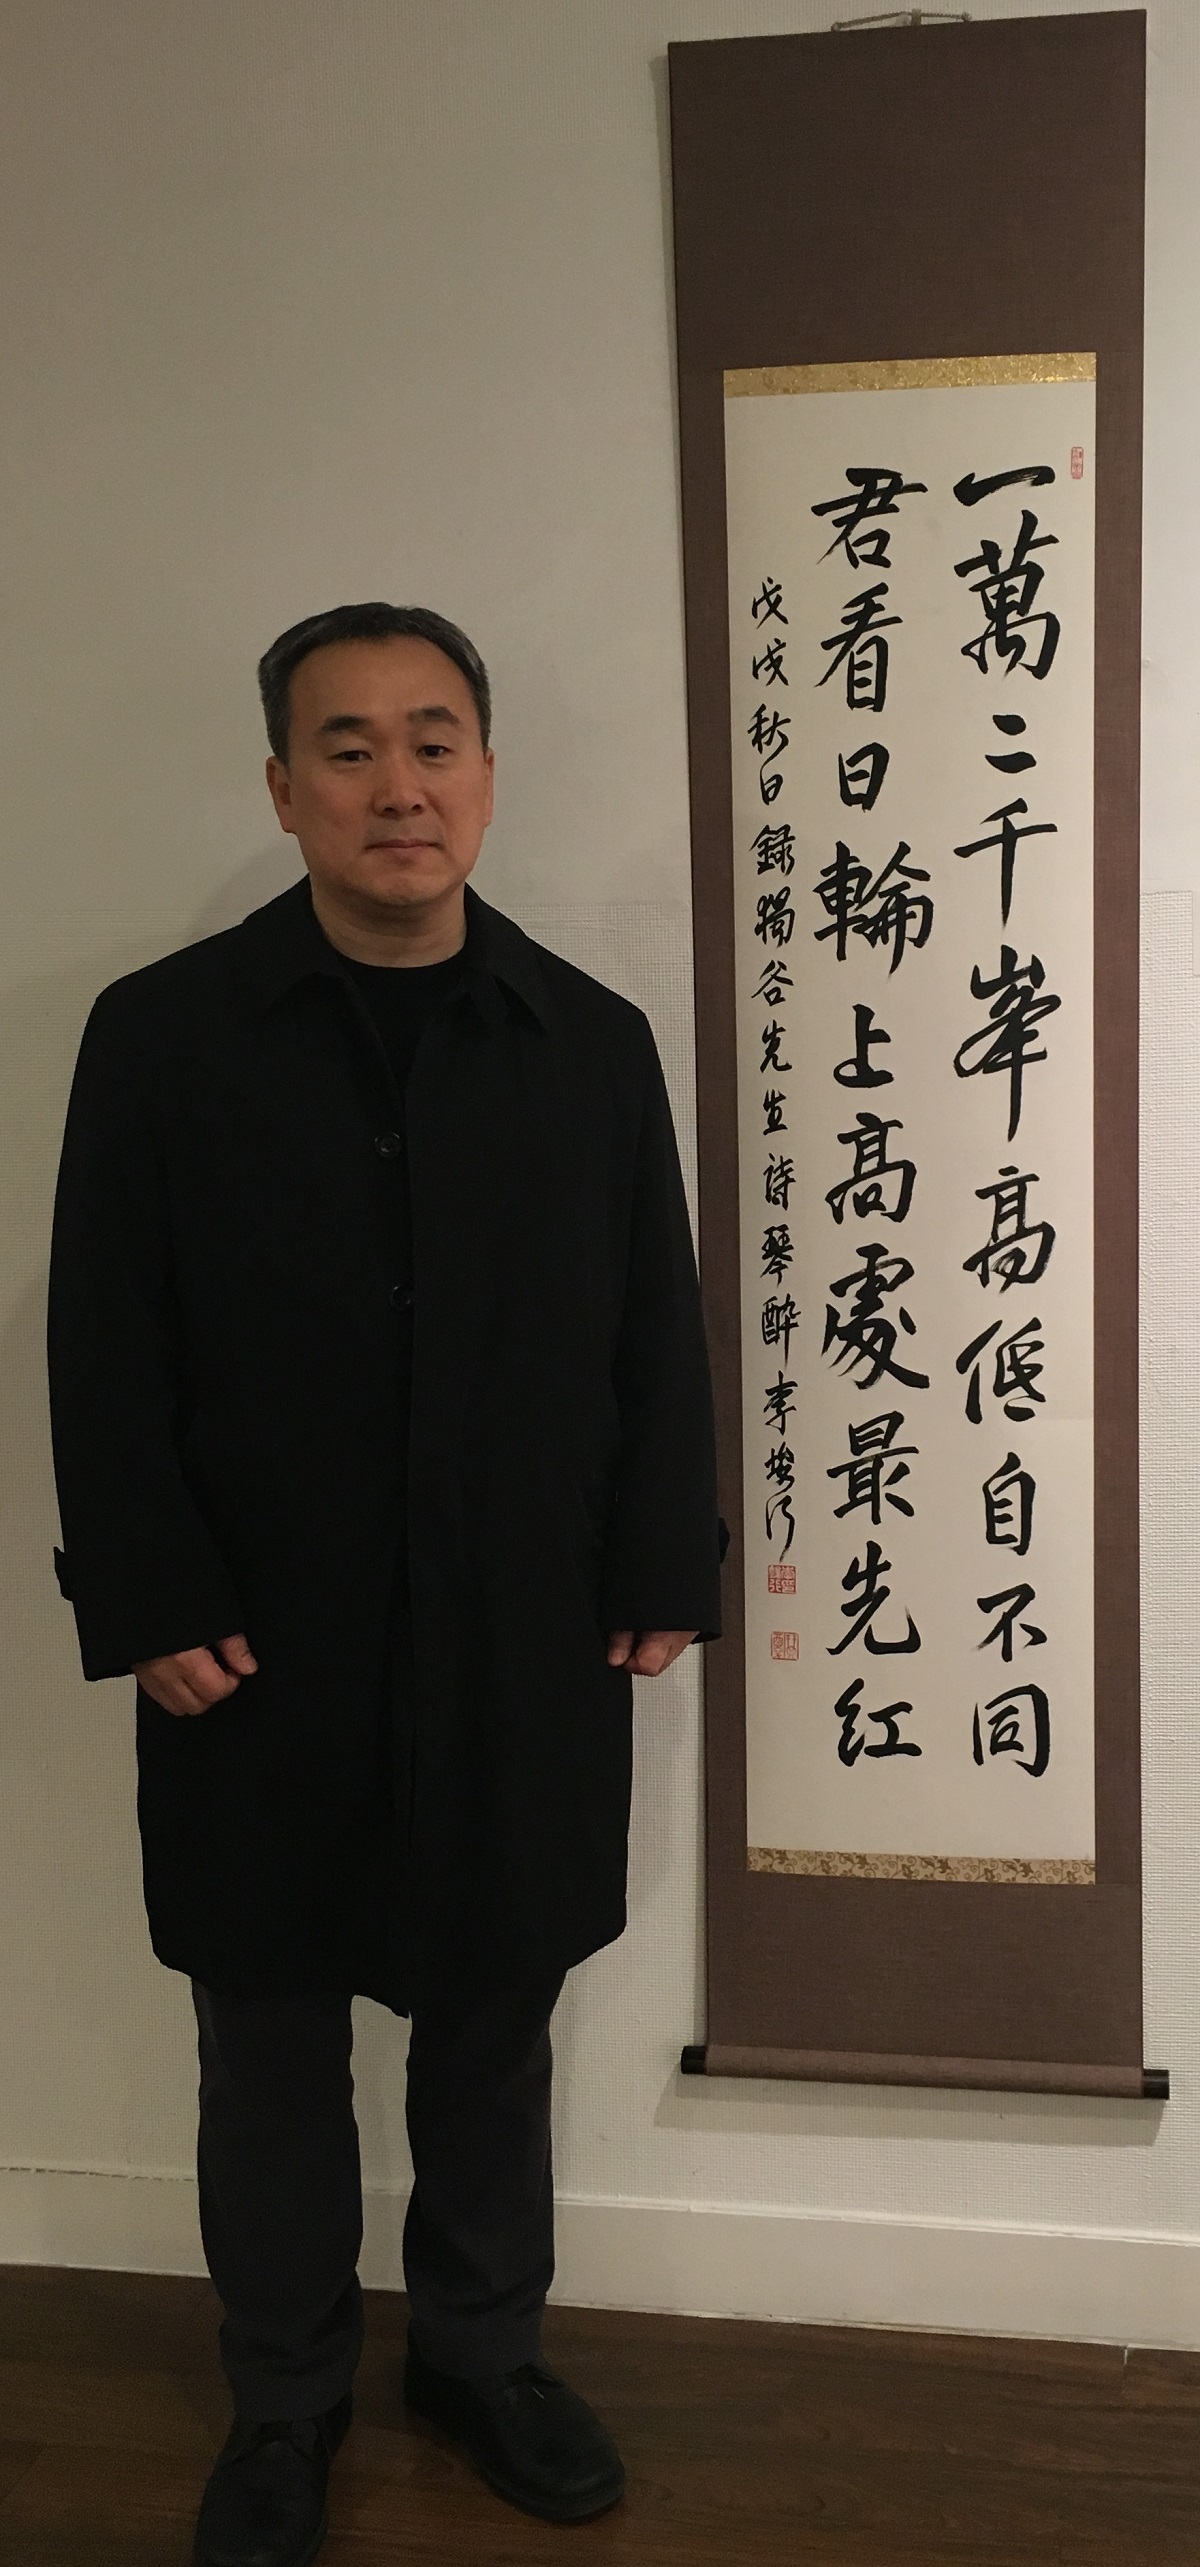 一萬二千峯高低自不同
君看日輪上高處最先紅
戊戌秋日錄獨谷先生詩琴酔李埈行